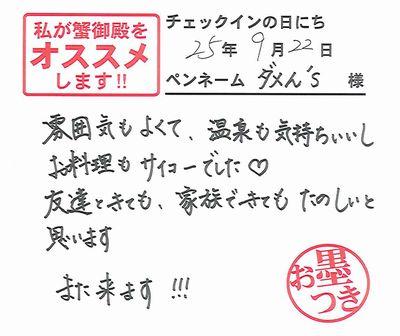 私が蟹御殿を
オススメ
します!!
チェックインの日にち
25年9月22日
ペンネーム ダメん's 様
雰囲気もよくて、温泉も気持ちいいし
お料理もサイコーでした♡
友達ときても、家族できても たのしいと
思います
また来ます!!!
お墨つき